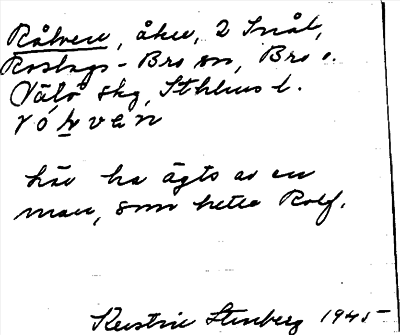 Rålven, åker, 2 Snål,
Roslags-Bro sn, Bro o.
Vätö skg, Sthlms l.
rólvan
här ha ägts av en
man, som hette Rolf.
Kerstin Stenberg 1945